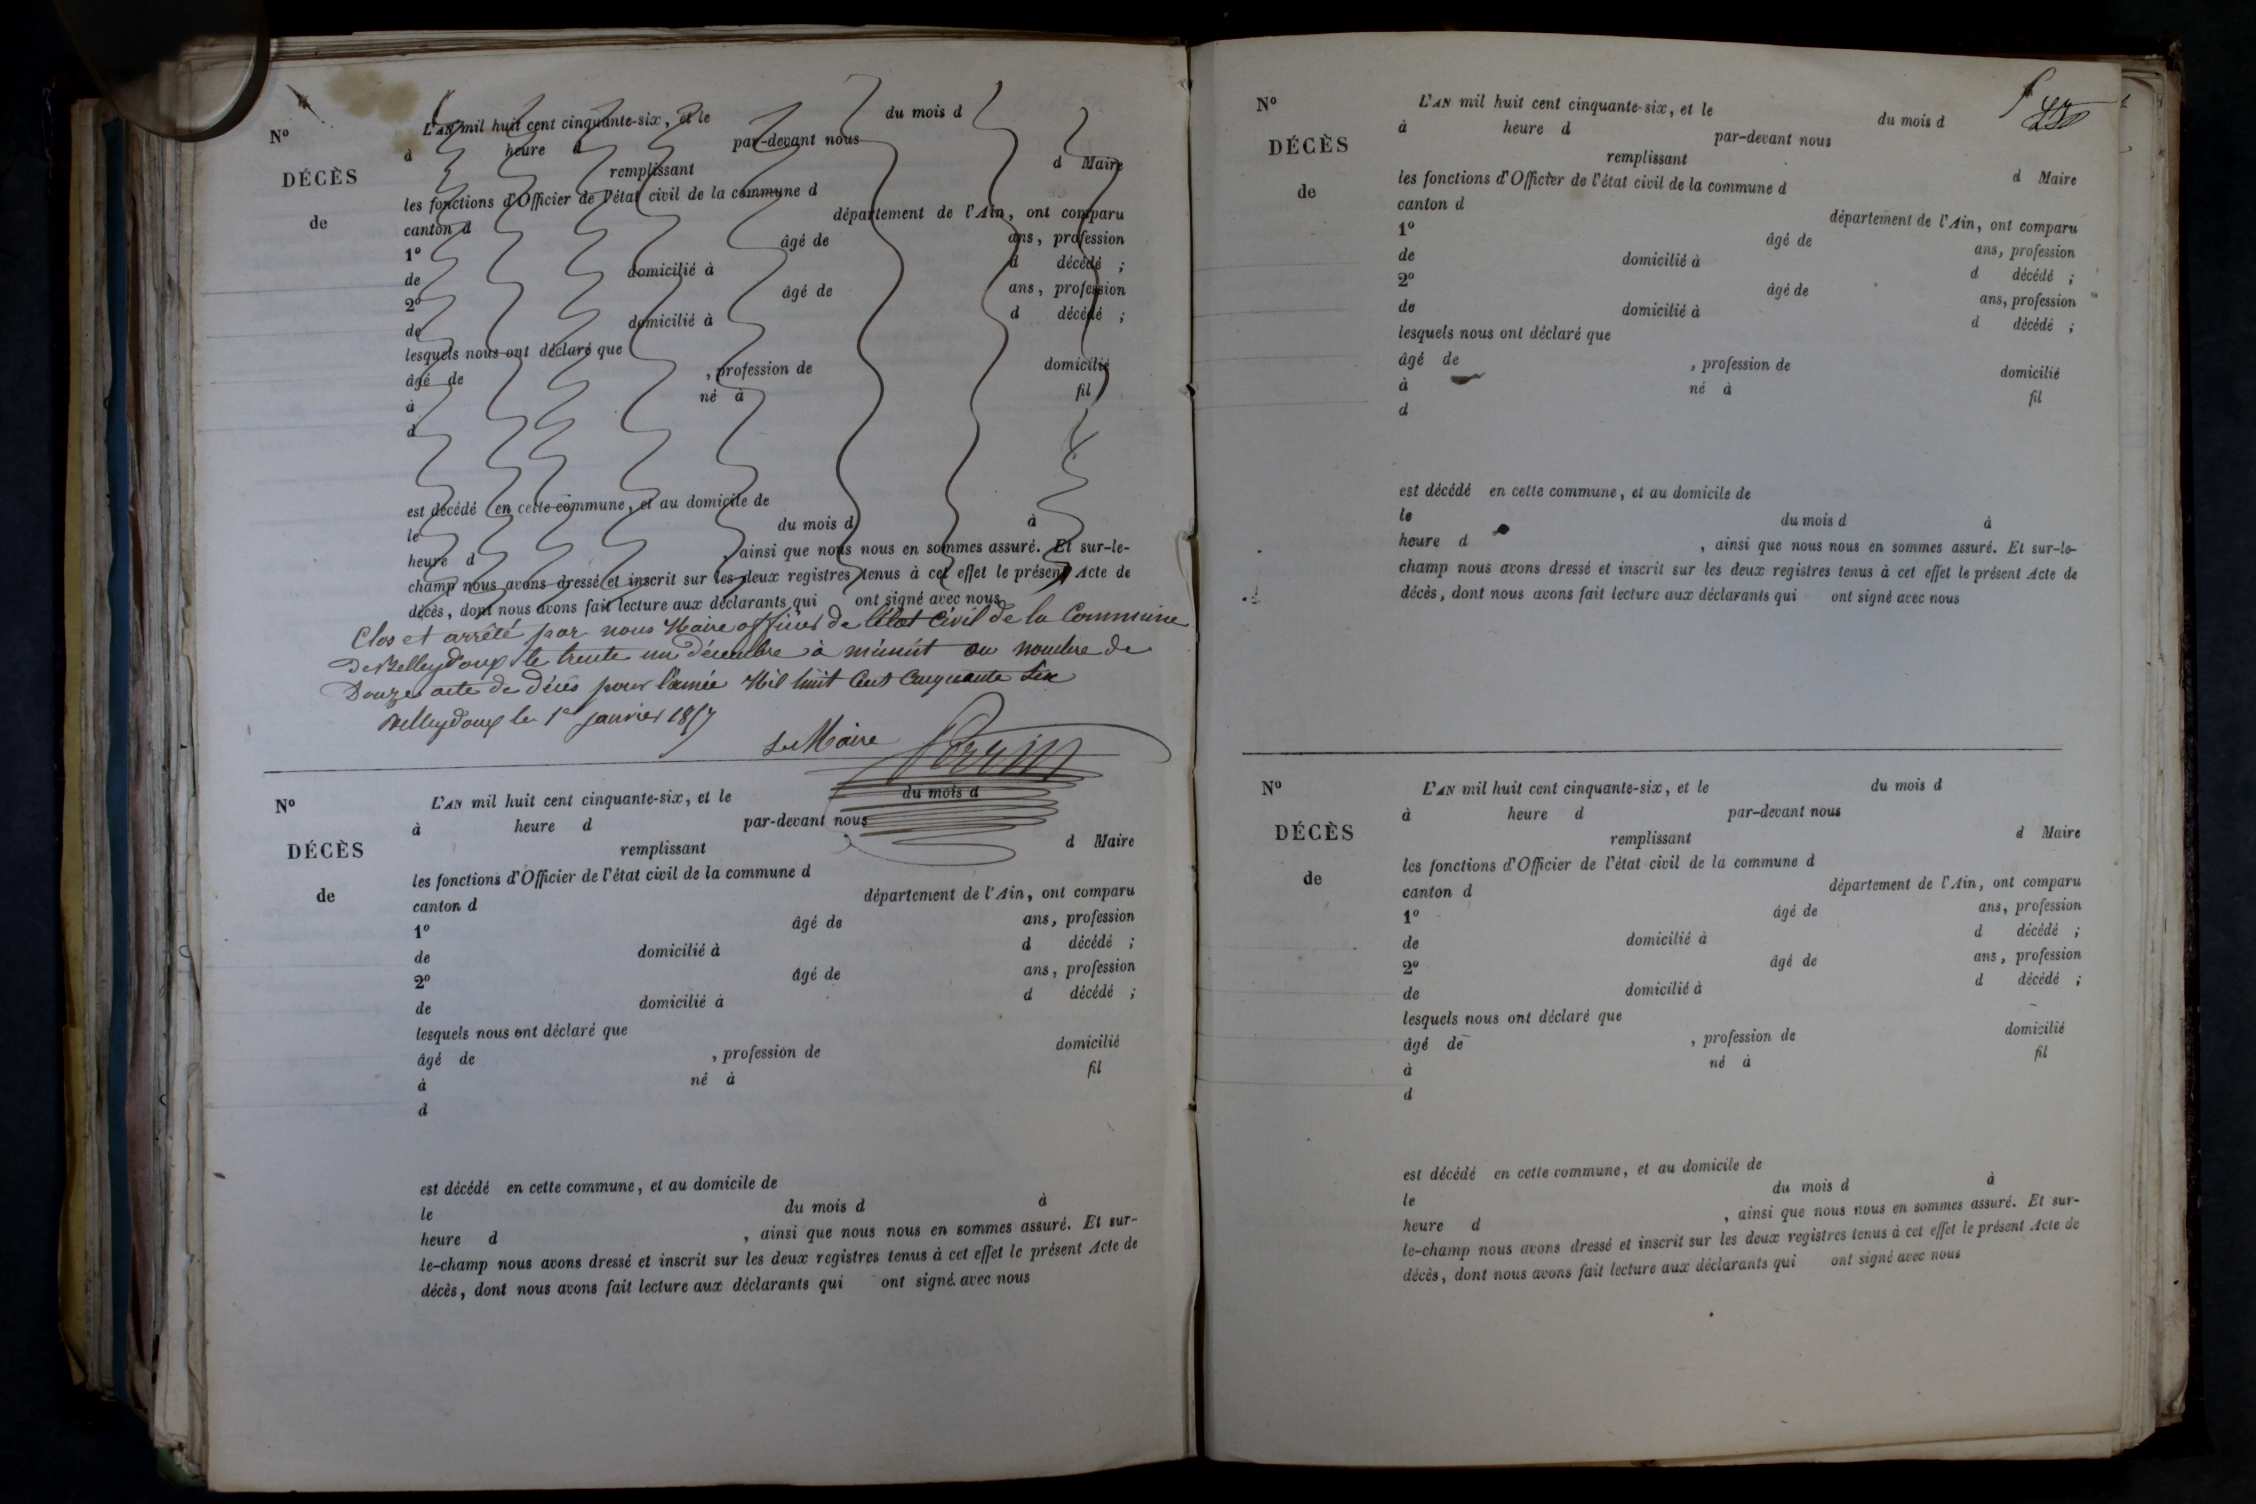 Nº
DÉCÈS
de
L'AN mil huit cent cinquante-six, et le du mois d
à heure d par-devant nous
remplissant d Maire
les fonctions d'Officier de l'état civil de la commune d
canton d département de l'Ain, ont comparu
1º âgé de ans, profession
de domicilié à d décédé ;
2º âgé de ans, profession
de domicilié à d décédé ;
lesquels nous ont déclaré que
âgé de , profession de domicilié
à né à fil
d
est décédé en cette commune, et au domicile de
le du mois d à
heure d , ainsi que nous nous en sommes assuré. Et sur-le-
champ nous avons dressé et inscrit sur les deux registres tenus à cet effet le présent Acte de
décès, dont nous avons fait lecture aux déclarants qui ont signé avec nous
Clos et arrêté par nous Maire officier de l'état Civil de la Commune
De Belleydoux le trente un décembre à minuit au nombre de
Douze acte de Décès pour l'année Mil huit Cent Cinquante Six
Belleydoux le 1er janvier 1857
Le Maire Perrin
Nº
DÉCÈS
de
L'AN mil huit cent cinquante-six, et le du mois d
à heure d par-devant nous
remplissant d Maire
les fonctions d'Officier de l'état civil de la commune d
canton d département de l'Ain, ont comparu
1º âgé de ans, profession
de domicilié à d décédé ;
2º âgé de ans, profession
de domicilié à d décédé ;
lesquels nous ont déclaré que
âgé de , profession de domicilié
à né à fil
d
est décédé en cette commune, et au domicile de
le du mois d à
heure d , ainsi que nous nous en sommes assuré. Et sur-
le-champ nous avons dressé et inscrit sur les deux registres tenus à cet effet le présent Acte de
décès, dont nous avons fait lecture aux déclarants qui ont signé avec nous
Nº
DÉCÈS
de
L'AN mil huit cent cinquante-six, et le du mois d
à heure d par-devant nous
remplissant d Maire
les fonctions d'Officier de l'état civil de la commune d
canton d département de l'Ain, ont comparu
1º âgé de ans, profession
de domicilié à d décédé ;
2º âgé de ans, profession
de domicilié à d décédé ;
lesquels nous ont déclaré que
âgé de , profession de domicilié
à né à fil
d
est décédé en cette commune, et au domicile de
le du mois d à
heure d , ainsi que nous nous en sommes assuré. Et sur-le-
champ nous avons dressé et inscrit sur les deux registres tenus à cet effet le présent Acte de
décès, dont nous avons fait lecture aux déclarants qui ont signé avec nous
Nº
DÉCÈS
de
L'AN mil huit cent cinquante-six, et le du mois d
à heure d par-devant nous
remplissant d Maire
les fonctions d'Officier de l'état civil de la commune d
canton d département de l'Ain, ont comparu
1º âgé de ans, profession
de domicilié à d décédé ;
2º âgé de ans, profession
de domicilié à d décédé ;
lesquels nous ont déclaré que
âgé de , profession de domicilié
à né à fil
d
est décédé en cette commune, et au domicile de
le du mois d à
heure d , ainsi que nous nous en sommes assuré. Et sur-
le-champ nous avons dressé et inscrit sur les deux registres tenus à cet effet le présent Acte de
décès, dont nous avons fait lecture aux déclarants qui ont signé avec nous